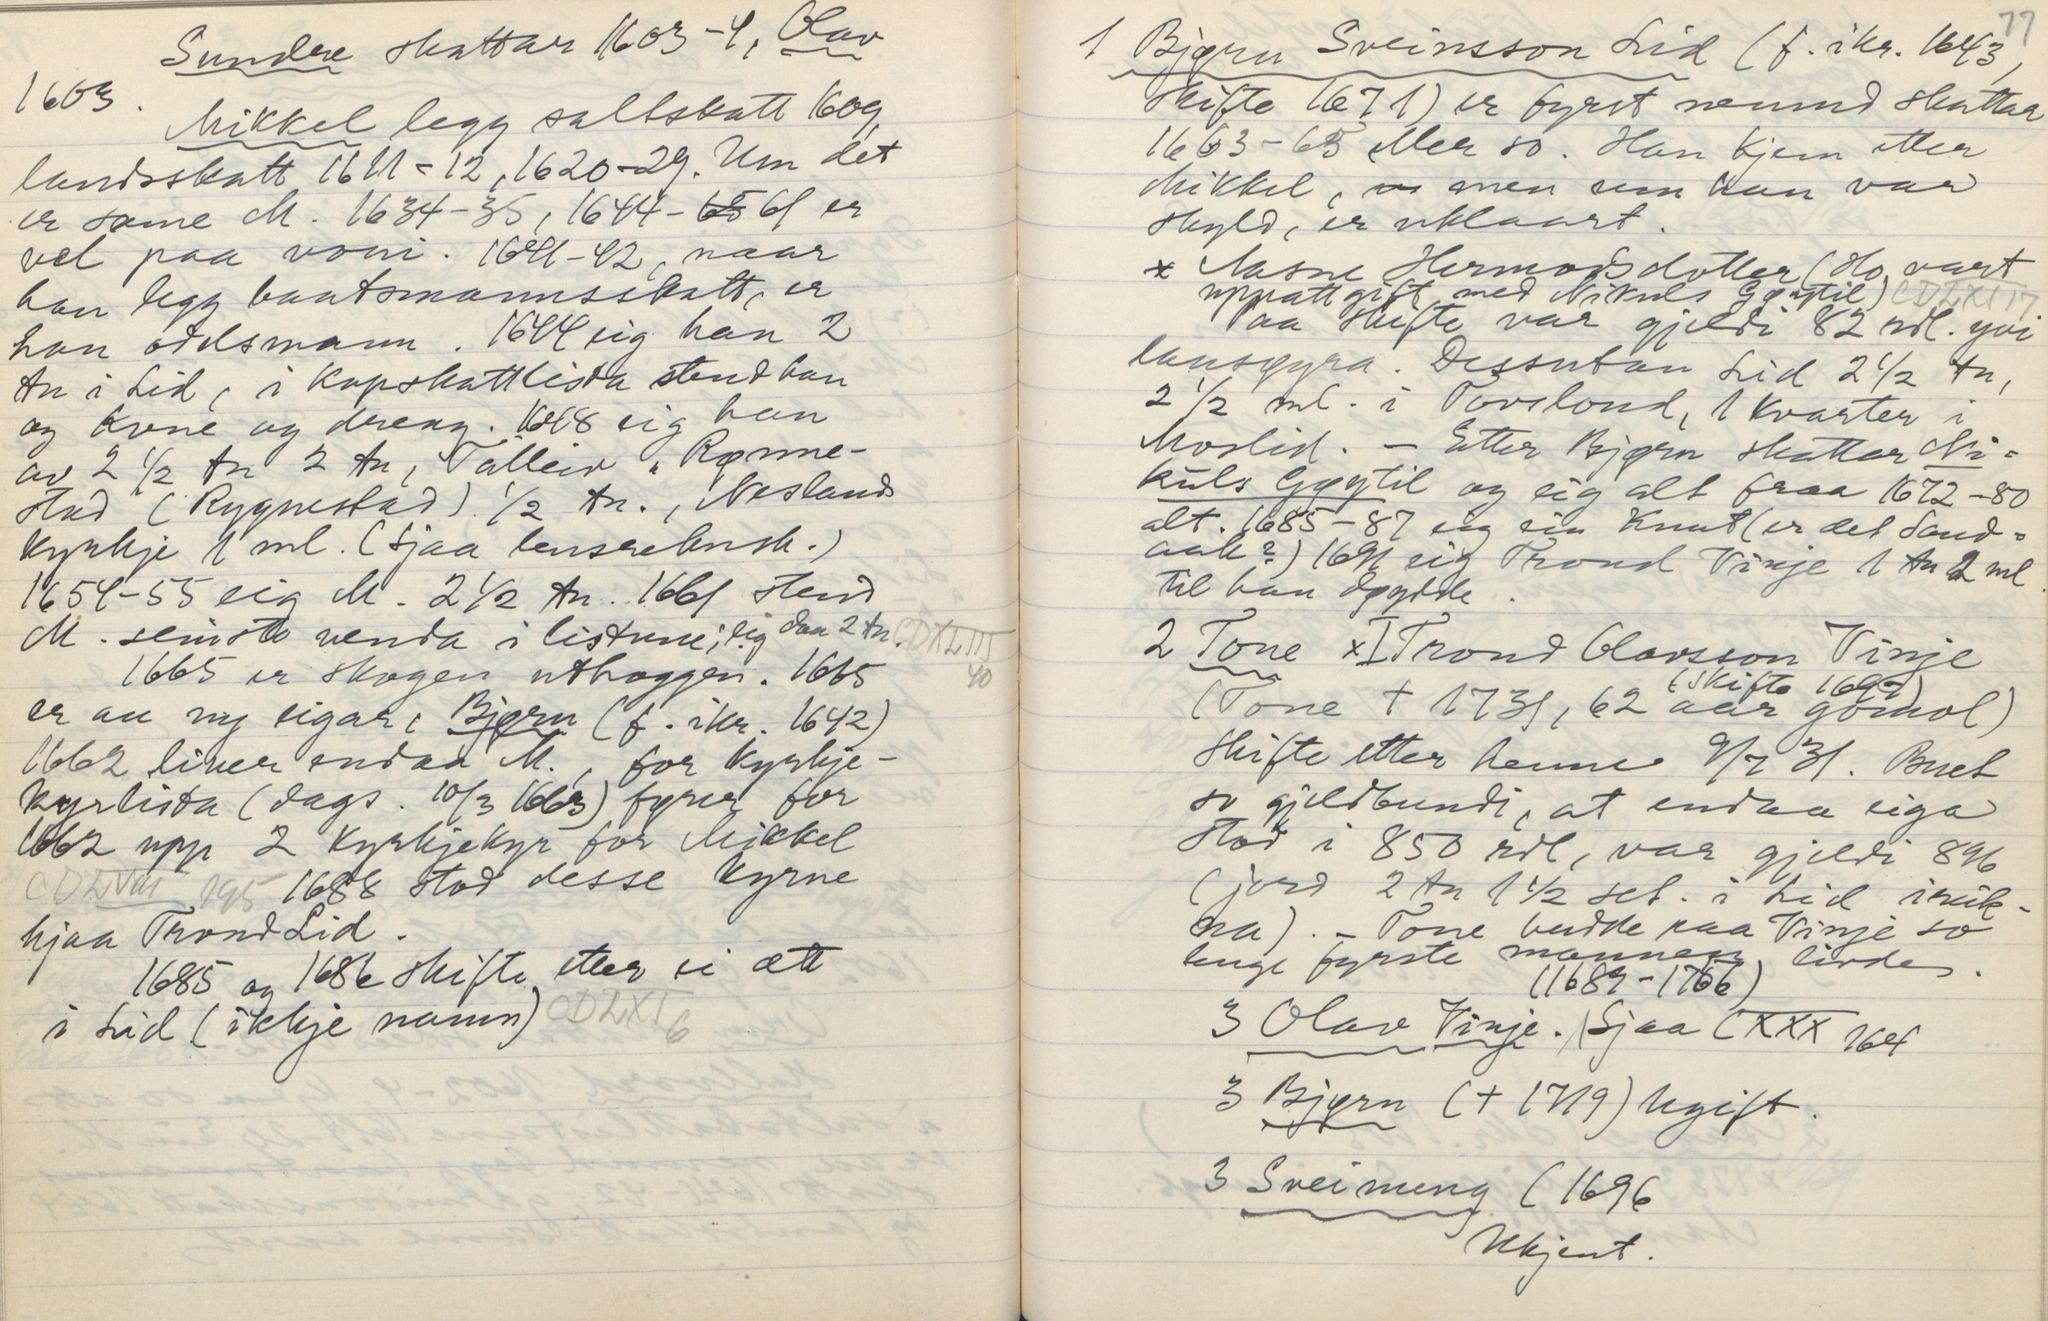 Sundre skattar 1603-4, Olav
1603.
Mikkel legg saltskatt 1609,
landsskatt 1611-12, 1620-29. Um det
er same M. 1634-35, 1644-61 er
vel paa voni. 1641-42, naar
han legg baatsmannsskatt, er
han odelsmann. 1644 eig han 2
tn i Lid, i Kopskattlista stend han
og kone og dreng. 1648 eig han
av 2 1/2 tn 2 tn, Tålleiv " Rønne-
stad (Rygnestad) 1/2 tn., Neslands
kyrkje 1 ml. (Sjaa lensreknsk.)
1654-55 eig M. 2 1/2 tn. 1661 stend
M. seinste venda i listune; eig daa 2 tn. CDXLIII 40
1665 er skogen uthoggen. 1665
er au ny eigar, Bjørn (f. ikr. 1642)
1662 liver endaa M., for kyrkje-
kyrlista (dags. 10/3 1663) fyrer for
1662 upp 2 kyrkjekyr for Mikkel
CDLVIII 195 1688 stod desse kyrne
hjaa Trond Lid.
1685 og 1686 skifte etter ei ætt
i Lid (ikkje namn) CDLXI 6
77
1 Bjørn Sveinsson Lid (f. ikr. 1643,
skifte 1671) er fyrst nemnd skattar
1663-65 eller so. Han kjem etter
Mikkel, men um han var
skyld, er uklaart.
x Aasne Hermodsdotter (Ho vart
uppattgift med Nikuls Gøytil) CDLXI 17
Paa skifte var gjeldi 82 rdl. yvi
lausøyra. Dessutan Lid 2 1/2 tn,
2 1/2 ml. i Tovslond, 1 kvarter i
Moslid. - Etter Bjørn skattar Ni-
kuls Gøytil og eig alt fraa 1672-80
alt. 1685-87 eig ein Knut (er det Sand-
aak?) 1691 eig Trond Vinje 1 tn 2 ml
til han døydde.
2 Tone xI Trond Olavsson Vinje
(skifte 1697)
(Tone + 1731, 62 aar gomol)
Skifte etter henne 9/7 31. Buet
so gjeldbundi, at endaa eiga
stod i 850 rdl, var gjeldi 896
(jord 2 tn 1 1/2 set. i Lid irek-
na). - Tone budde paa Vinje so
lenge fyrste mannen livde.
(1689-1766)
3 Olav Vinje. Sjaa CXXX 164
3 Bjørn (+ 1719) Ugift.
3 Sveinung (1696
Ukjent.